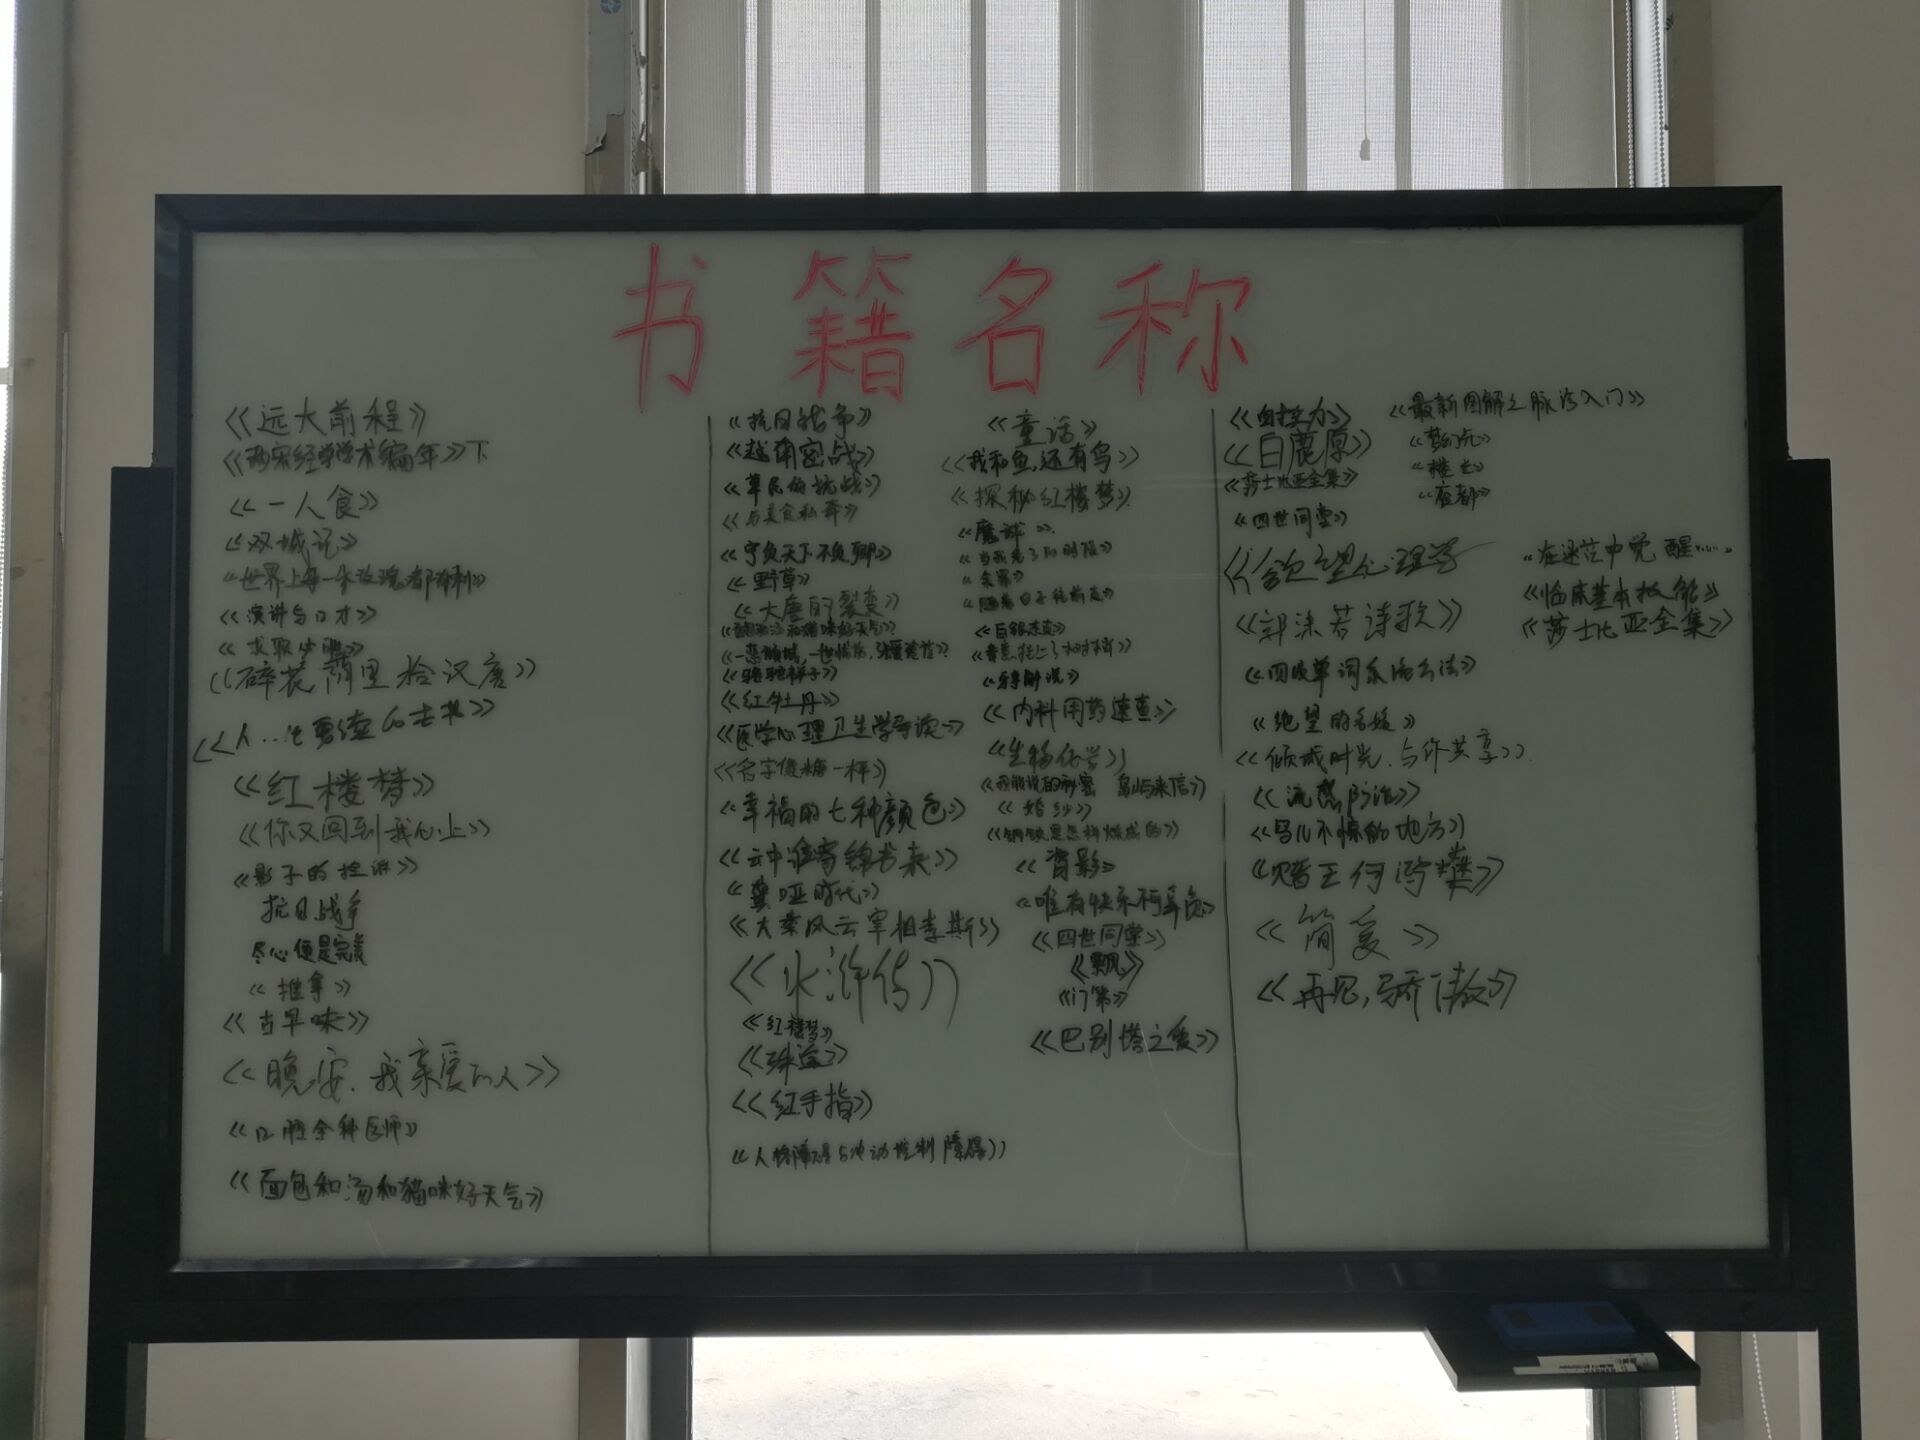 书籍名称
《远大前程》
《两宋经学学术编年》下
《一人食》
《双城记》
《世界上每一朵玫瑰都有刺》
《演讲与口才》
《碎花阴里拾汉唐》
《红楼梦》
《你又回到我心上》
《影子的控诉》
抗日战争
尽心便是完美
《推拿》
《古早味》
《晚安.我亲爱的人》
《口腔全科医师》
《面包和汤和猫咪好天气》
《抗日战争》
《越南密战》
《草民的抗战》
《与美食私奔》
《宁负天下不负卿》
《野草》
《大唐的裂变》
《面包和汤和猫咪好天气》
《骆驼祥子》
《红牡丹》
《医学心理卫生学导读》
《名字像糖一样》
《幸福的七种颜色》
《云中谁寄锦书来》
《聋哑时代》
《大秦风云宰相李斯》
《水浒传》
《红楼梦》
《殊途》
《红手指》
《人格障碍与冲动控制障碍》
《童话》
《我和鱼,还有鸟》
《探秘红楼梦》
《余罪》
《白银帝国》
《内科用药速查》
《生物化学》
《婚纱》
《钢铁是怎样炼成的》
《背影》
《唯有快乐不可辜负》
《四世同堂》
《飘》
《门第》
《巴别塔之爱》
《自控力》
《白鹿原》
《莎士比亚全集》
《四世同堂》
《欲望心理学》
《郭沫若诗歌》
《四级单词系活方法》
《绝望的名媛》
《倾城时光.与你共享》
《流感防治》
《鸟儿不惊的地方》
《赌王何鸿燊》
《简爱》
《再见,骄傲》
《最新图解之脉诊入门》
《楼兰》
《夜都》
《在迷茫中觉醒……
《临床基本技能》
《莎士比亚全集》